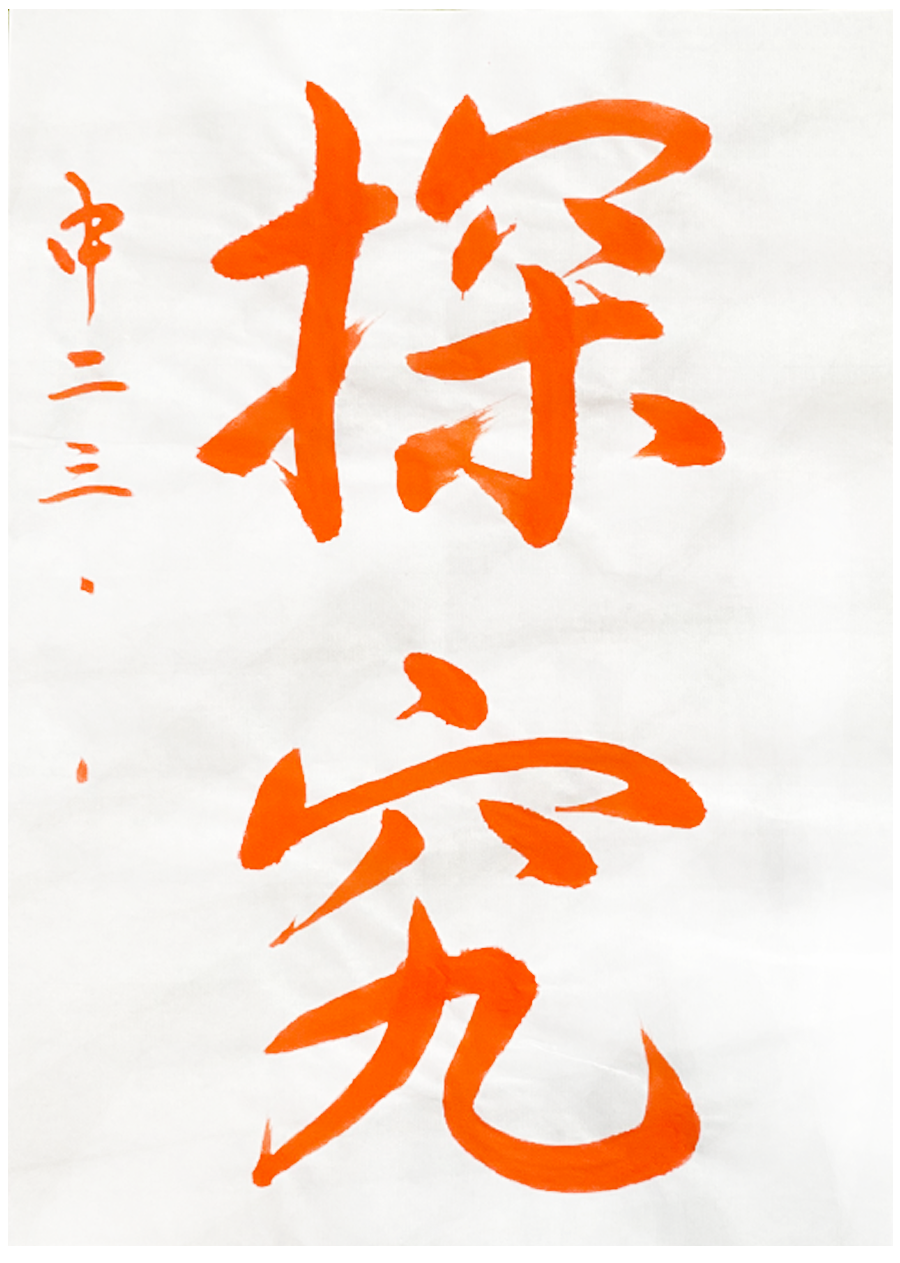 探究
中二三